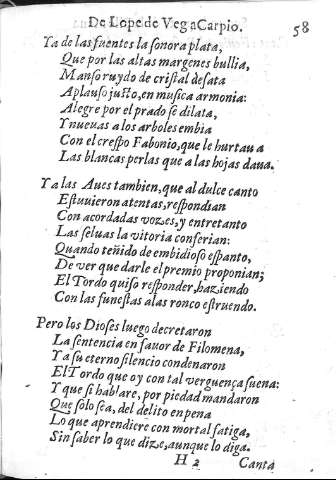 De Lope de Vega Carpio.
58
Ya de las fuentes la sonora plata,
Que por las altas margenes bullia,
Manso ruydo de cristal desata
Aplauso justo, en musica armonia:
Alegre por el prado se dilata,
Y nueuas a los arboles embia
Con el crespo Fabonio, que le hurtaua
Las blancas perlas que a las hojas daua.
Ya las Aues tambien, que al dulce canto
Estuuieron atentas, respondian
Con acordadas vozes, y entretanto
Las seluas la vitoria conferian:
Quando teñido de embidioso espanto,
De ver que darle el premio proponian;
El Tordo quiso responder, haziendo
Con las funestas alas ronco estruendo.
Pero los Dioses luego decretaron
La sentencia en fauor de Filomena,
Y a su eterno silencio condenaron
El Tordo que oy con tal verguença suena:
Y que si hablare, por piedad mandaron
Que solo sea, del delito en pena
Lo que aprendiere con mortal fatiga,
Sin saber lo que dize, aunque lo diga.
H 2
Canta